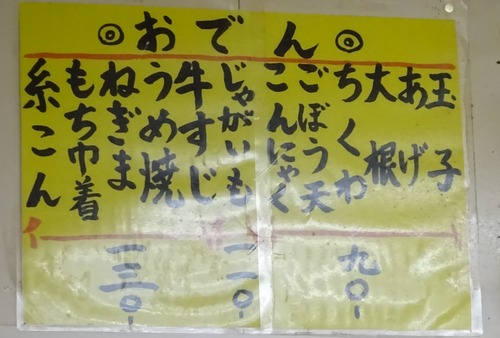 ◎おでん◎
玉子
あげ
大根
ちくわ
ごぼう天
こんにゃく
じゃがいも
牛すじ
うめ焼
ねぎま
もち巾着
糸こん
九〇-
一一〇-
一三〇-